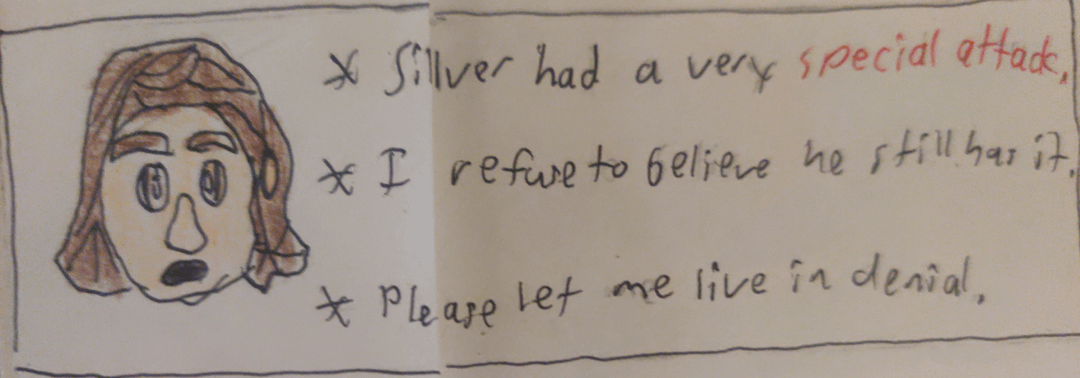 * Sillver had a very special attack.
* I refuse to believe he still has it.
* Please let me live in denial.